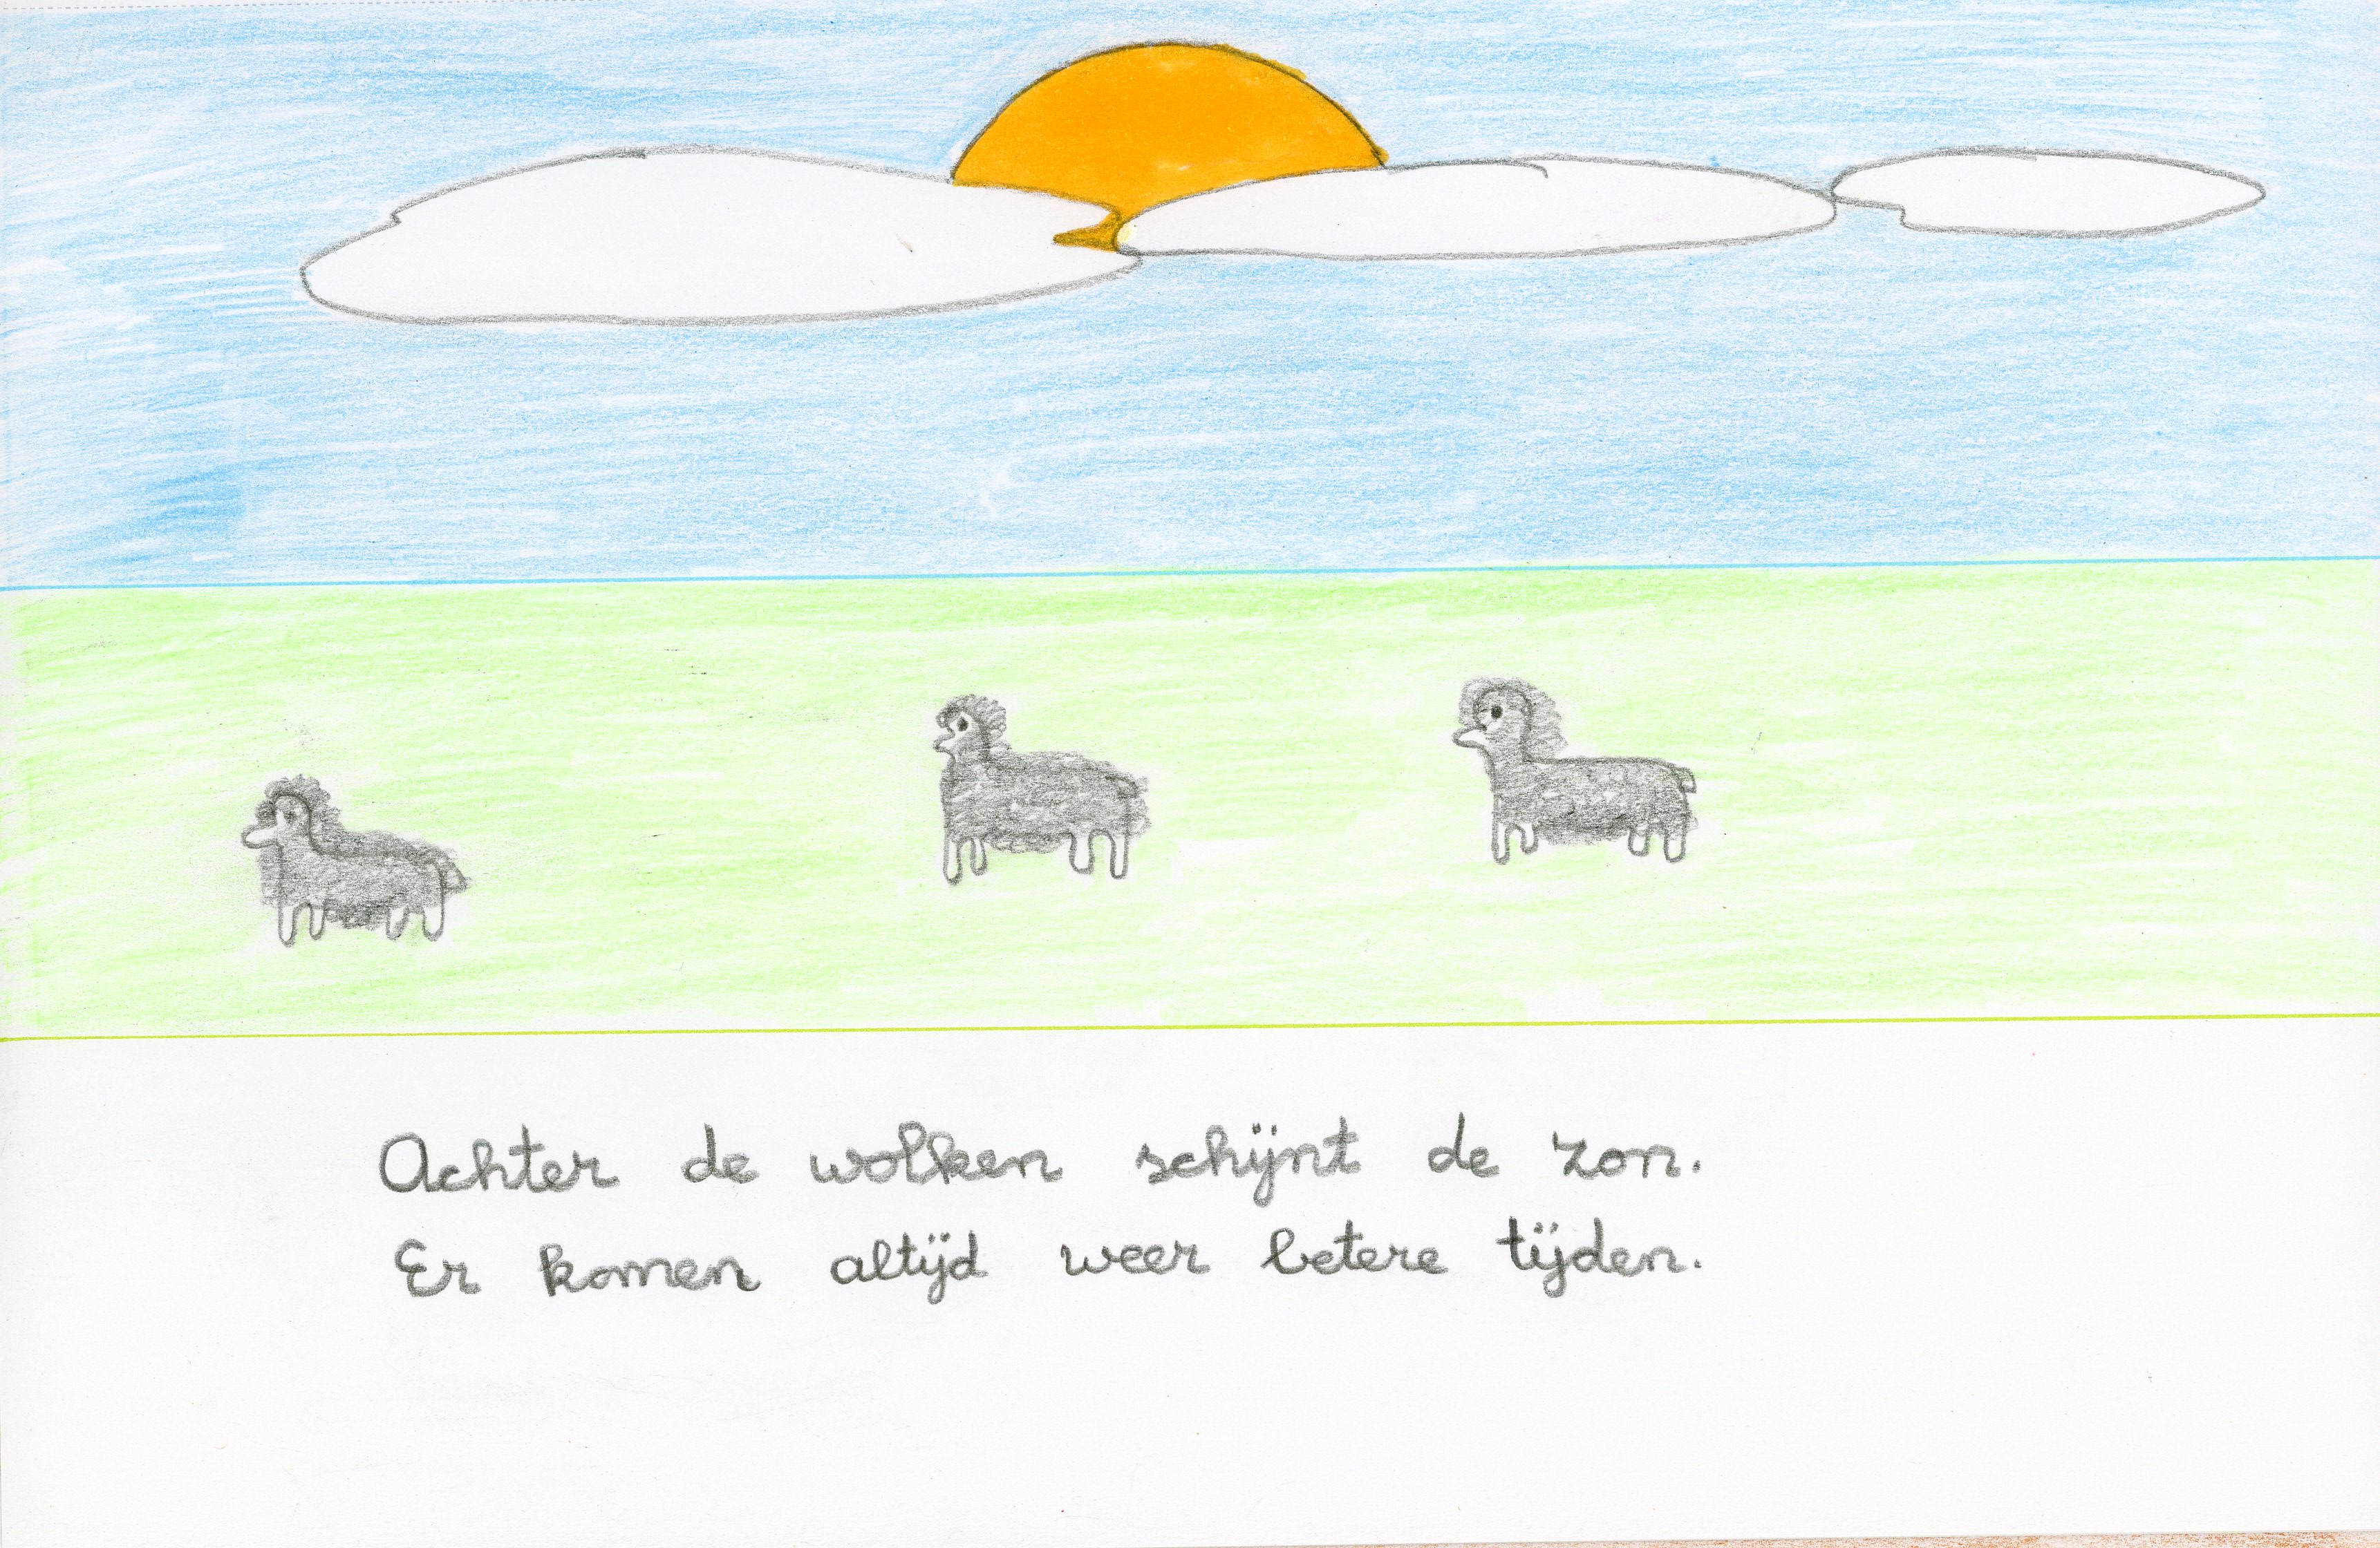 Achter de wolken schijnt de zon.
Er komen altijd weer betere tijden.